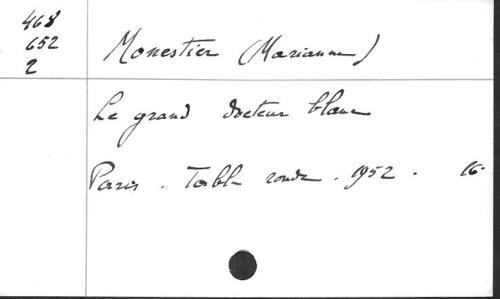 468
652
2
Monestier (Marianne)
Le grand docteur blanc
Paris. Table ronde. 1952. 16.